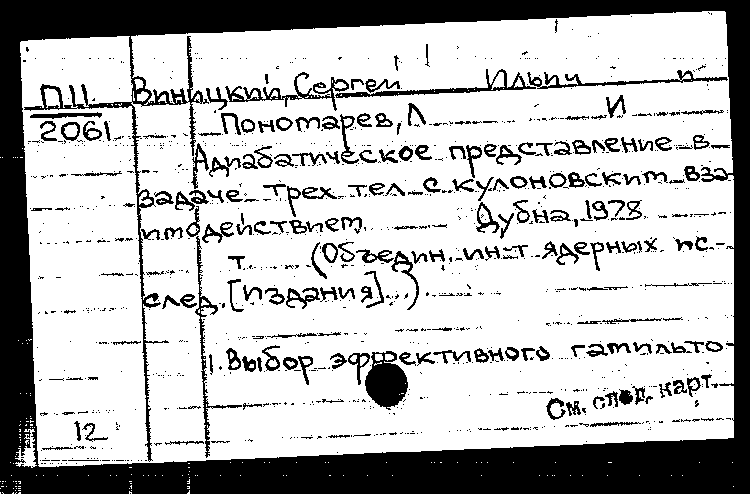 П11 Виницкий, Сергей Ильич и
2061 Пономарев, Л И
Адиабатическое представление в
задаче трех тел с кулоновским вза
имодействием Дубна, 1978
т. (Объедин. ин-т ядерных ис-
след. [Издания]...)
1. Выбор эффективного гамильто-
См. след. карт.
12